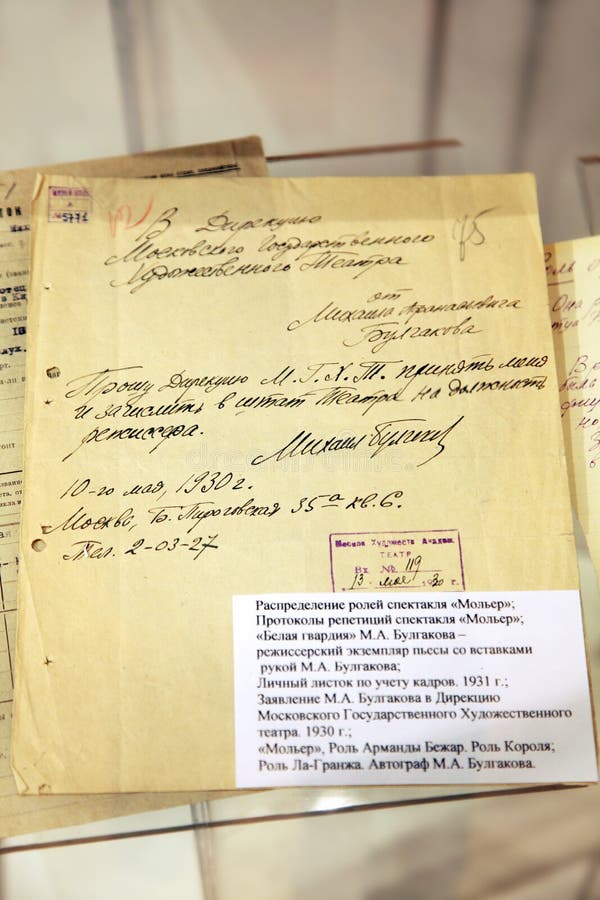 5771
75
В Дирекцию
Московского Государственного
Художественного Театра
от
Михаила Афанасьевича
Булгакова
Прошу Дирекцию М.Г.Х.Т. принять меня
и зачислить в штат Театра на должность
режиссера.
Михаил Булгаков
10-го мая, 1930 г.
Москва, Б. Пироговская 35а кв. 6.
Тел. 2-03-27
Художеств Академ.
ТЕАТР
Вх № 119
13 мая 1930 г.
Распределение ролей спектакля «Мольер»;
Протоколы репетиций спектакля «Мольер»;
«Белая гвардия» М.А. Булгакова –
режиссерский экземпляр пьесы со вставками
рукой М.А. Булгакова;
Личный листок по учету кадров. 1931 г.;
Заявление М.А. Булгакова в Дирекцию
Московского Государственного Художественного
театра. 1930 г.;
«Мольер», Роль Арманды Бежар. Роль Короля;
Роль Ла-Гранжа. Автограф М.А. Булгакова.